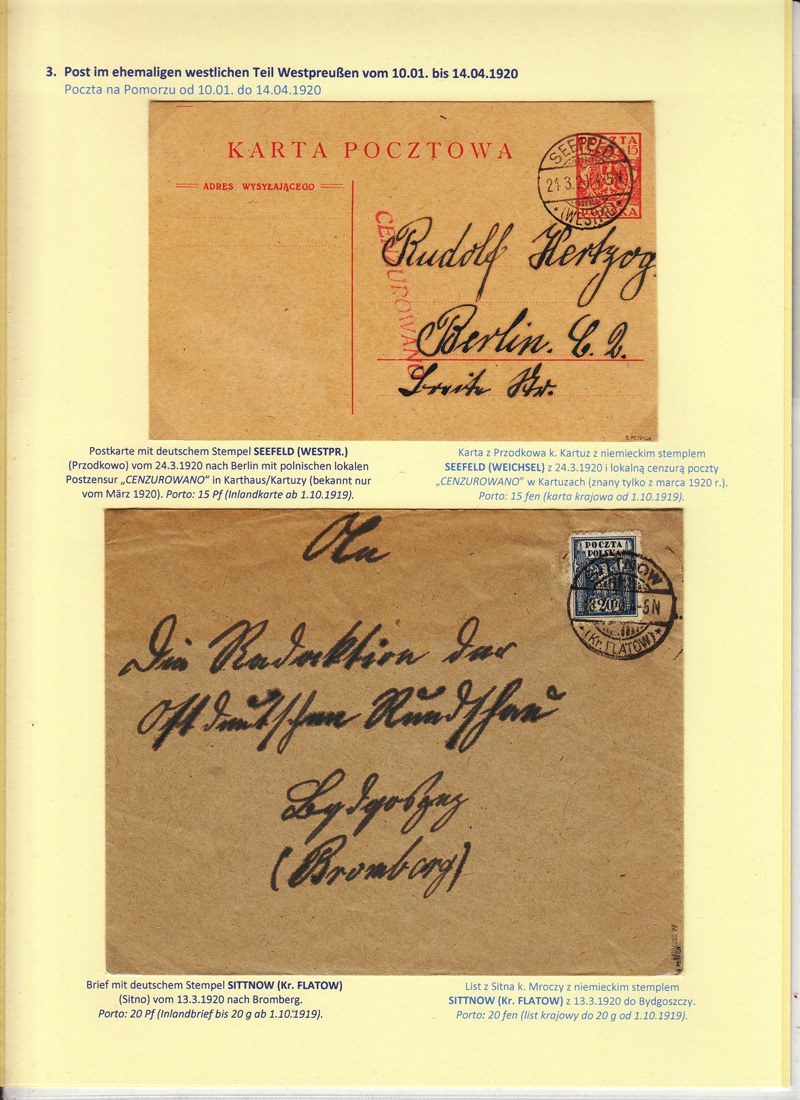 3. Post im ehemaligen westlichen Teil Westpreußen vom 10.01. bis 14.04.1920
Poczta na Pomorzu od 10.01. do 14.04.1920
KARTA POCZTOWA
ADRES WYSYŁAJĄCEGO
POCZTA
15
POLSKA
SEEFELD
24.3.20.4-5N
(WESTPR.)
CENZUROWANO
Rudolf Hertzog
Berlin. C. 2.
Breite Str.
S. PETRIUK
Postkarte mit deutschem Stempel SEEFELD (WESTPR.)
(Przodkowo) vom 24.3.1920 nach Berlin mit polnischen lokalen
Postzensur „CENZUROWANO" in Karthaus/Kartuzy (bekannt nur
vom März 1920). Porto: 15 Pf (Inlandkarte ab 1.10.1919).
Karta z Przodkowa k. Kartuz z niemieckim stemplem
SEEFELD (WEICHSEL) z 24.3.1920 i lokalną cenzurą poczty
„CENZUROWANO" w Kartuzach (znany tylko z marca 1920 r.).
Porto: 15 fen (karta krajowa od 1.10.1919).
An
POCZTA
POLSKA
20
SITTNOW
-5N
(Kr. FLATOW)
Die Redaktion der
Ostdeutschen Rundschau
Bydgoszcz
(Bromberg)
S. PETRIUK
Brief mit deutschem Stempel SITTNOW (Kr. FLATOW)
(Sitno) vom 13.3.1920 nach Bromberg.
Porto: 20 Pf (Inlandbrief bis 20 g ab 1.10.1919).
List z Sitna k. Mroczy z niemieckim stemplem
SITTNOW (Kr. FLATOW) z 13.3.1920 do Bydgoszczy.
Porto: 20 fen (list krajowy do 20 g od 1.10.1919).